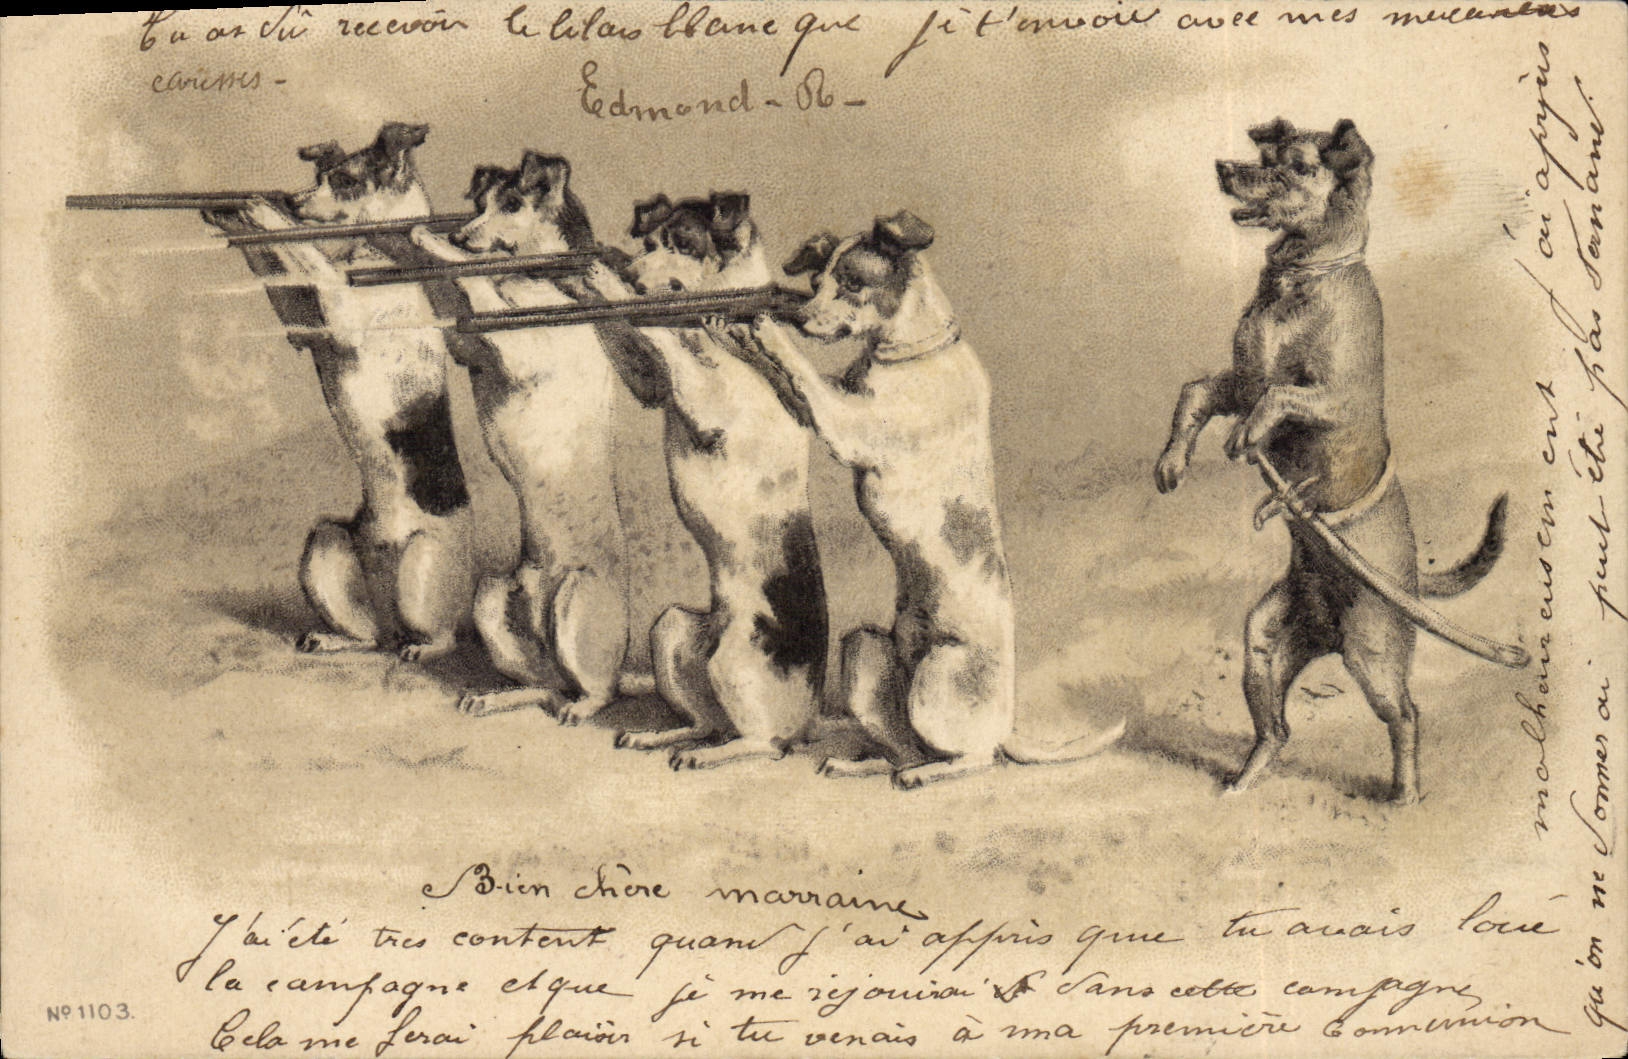 Bien chère marraine
J'ai été tres content quand j'ai appris que tu avais loué
la campagne et que je me réjouirai dans cette campagne
Cela me ferai plaisir si tu venais à ma première Communion
malheureusement j'ai appris
qu'on ne donnerai peut être pas semaine.
Tu as dû recevoir le lilas blanc que je t'envoie avec mes
caresses -
Edmond - R -
Nº 1103.